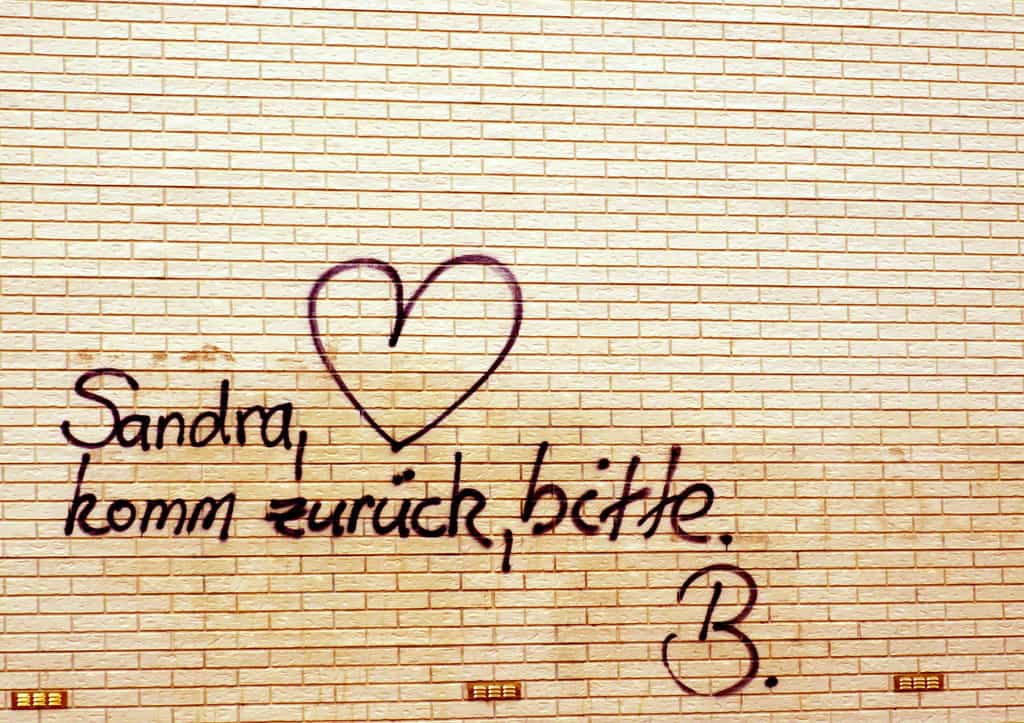 Sandra,
komm zurück, bitte.
B.